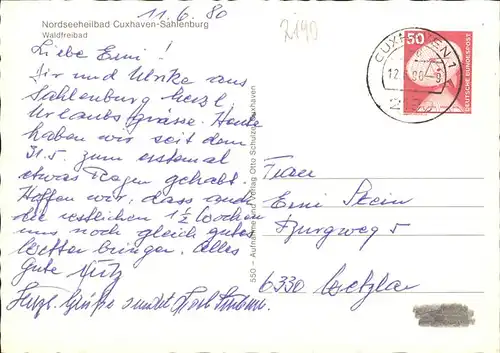 11.6.80
2190
Nordseeheilbad Cuxhaven-Sahlenburg
Waldfreibad
Liebe Emi!
Dir und Ulrike aus
Sahlenburg herzl.
Urlaubsgrüsse. Heute
haben wir seit dem
31.5. zum erstemal
etwas Regen gehabt.
Hoffen wir, dass auch
die restlichen 1 1/2 Wochen
uns noch gleich gutes
Wetter bringen. Alles
Gute
Herzl. Grüße
550 – Aufnahme und Verlag Otto Schulze, Cuxhaven
CUXHAVEN 1
50
DEUTSCHE BUNDESPOST
Emi Stein
Burgweg 5
6330 Wetzlar